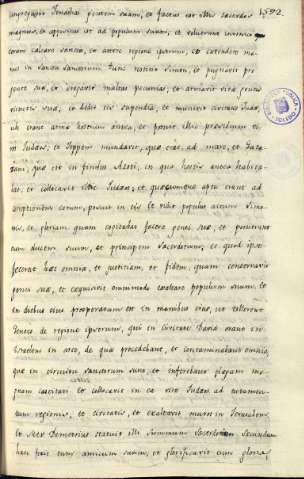 1592.
congregavit Jonathas gentem suam, et factus est illis sacerdos
magnus, et appositus est ad populum suum, et voluerunt inimici
eorum calcare
et atterere regionem ipsorum, et extendere ma-
nus in sancta eorum: tunc restitit Simon, et pugnavit pro
gente sua, et erogavit multas pecunias, et armavit viros gentis
virtutis suæ, et dedit illis stipendia, et munivit civitates Judæ,
ubi erant arma hostium antea, et posuit illic præsidium vi-
ros Judæos, et Joppen munivit, quæ erat ad mare, et Gaza-
ram, quæ est in finibus Azoti, in qua hostes antea habita-
bant, et collocavit illic Judæos, et quæcumque apta erant ad
correptionem eorum, posuit in eis. et vidit populus actum Simo-
nis, et gloriam quam cogitabat facere genti suæ, et posuerunt
eum ducem suum, et principem sacerdotum, eo quod ipse
fecerat hæc omnia, et justitiam, et fidem, quam conservavit
genti suæ, et exquisivit omni modo exaltare populum suum, et
in diebus ejus prosperatum est in manibus ejus, ut tollerent
gentes de regione ipsorum, qui in civitate David erant in
Jerusalem in arce, de qua procedebant, et contaminabant omnia,
quæ in circuitu sanctorum sunt, et inferebant plagam ma-
gnam castitati. et collocavit in ea viros Judæos ad tutamen-
tum regionis, et civitatis, et exaltavit muros in Jerusalem.
et Rex Demetrius statuit illi summum sacerdotium secundum
hæc fecit eum amicum suum, et glorificavit eum gloria